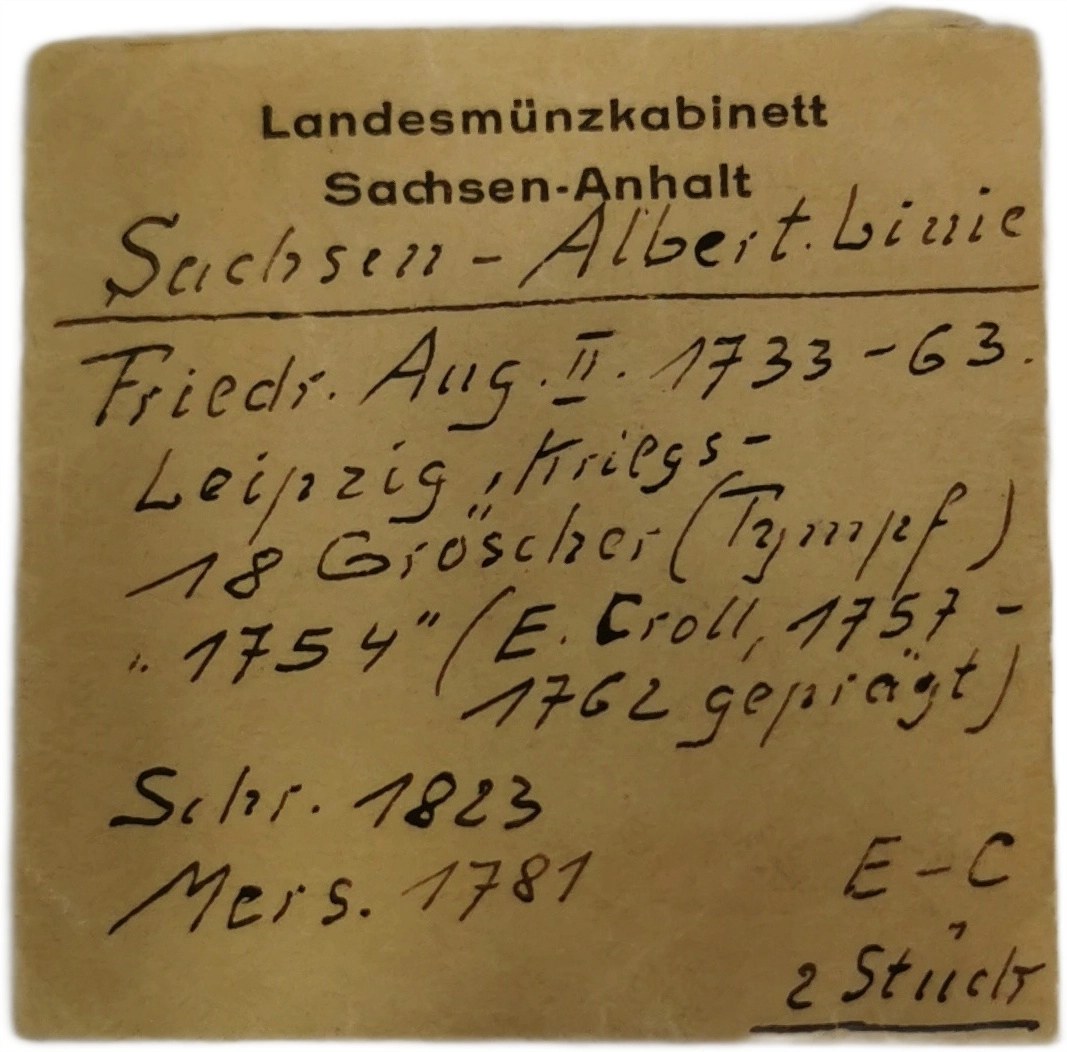 Landesmünzkabinett
Sachsen-Anhalt
Sachsen - Albert. Linie
Friedr. Aug. II. 1733 - 63.
Leipzig, Kriegs-
18 Gröscher (Tympf)
"1754" (E. Croll, 1757 -
1762 geprägt)
Schr. 1823
Mers. 1781
E - C
2 Stück